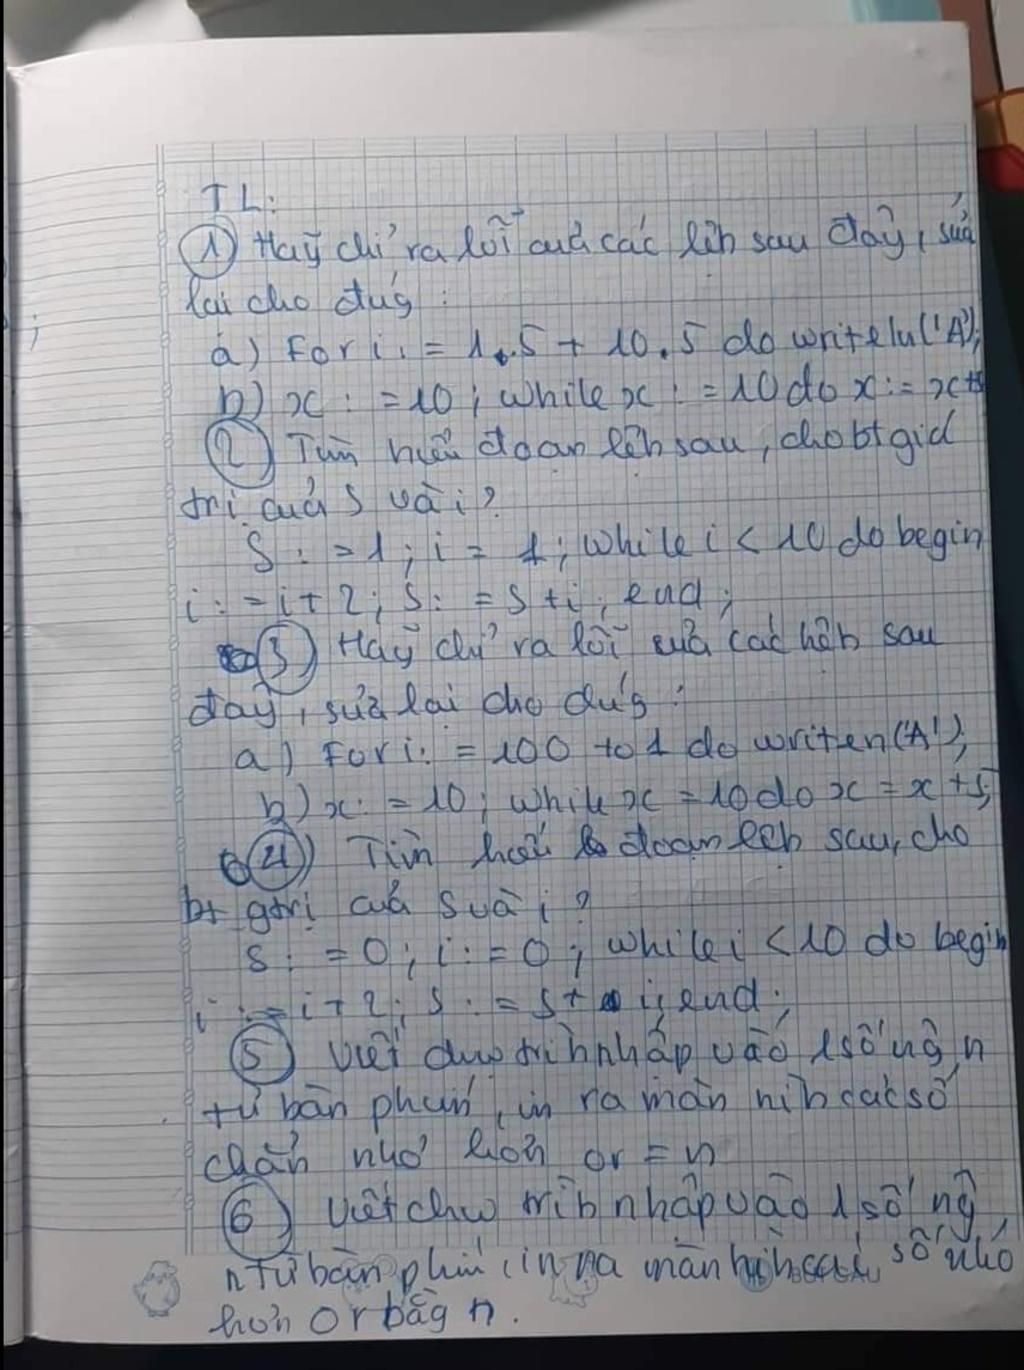 TL:
① Hãy chỉ ra lỗi của các lệh sau đây, sửa
lại cho đúg :
a) For i : = 1.5 to 10.5 do writeln('A');
b) x : = 10 ; while x : = 10 do x : = x+5
② Tìm hiểu đoạn lệh sau, cho bt giá
trị của S và i ?
S : = 1 ; i = 1 ; while i < 10 do begin
i : = i + 2 ; S : = S + i ; end ;
③ Hãy chỉ ra lỗi của các lệh sau
đây, sửa lại cho đúg :
a) For i : = 100 to 1 do writen('A');
b) x : = 10 ; while x = 10 do x = x + 5;
④ Tìm hiểu đoạn lệh sau, cho
bt gtrị của S và i ?
S : = 0 ; i : = 0 ; while i < 10 do begin
i : = i + 2 ; S : = S + i ; end ;
⑤ Viết chư trìh nhập vào 1 số ng n
từ bàn phím, in ra màn hìh các số
chẵn nhỏ hơn or = n
⑥ Viết chư trìh nhập vào 1 số ng
n từ bàn phím, in ra màn hìh các số nhỏ
hơn or bằg n.